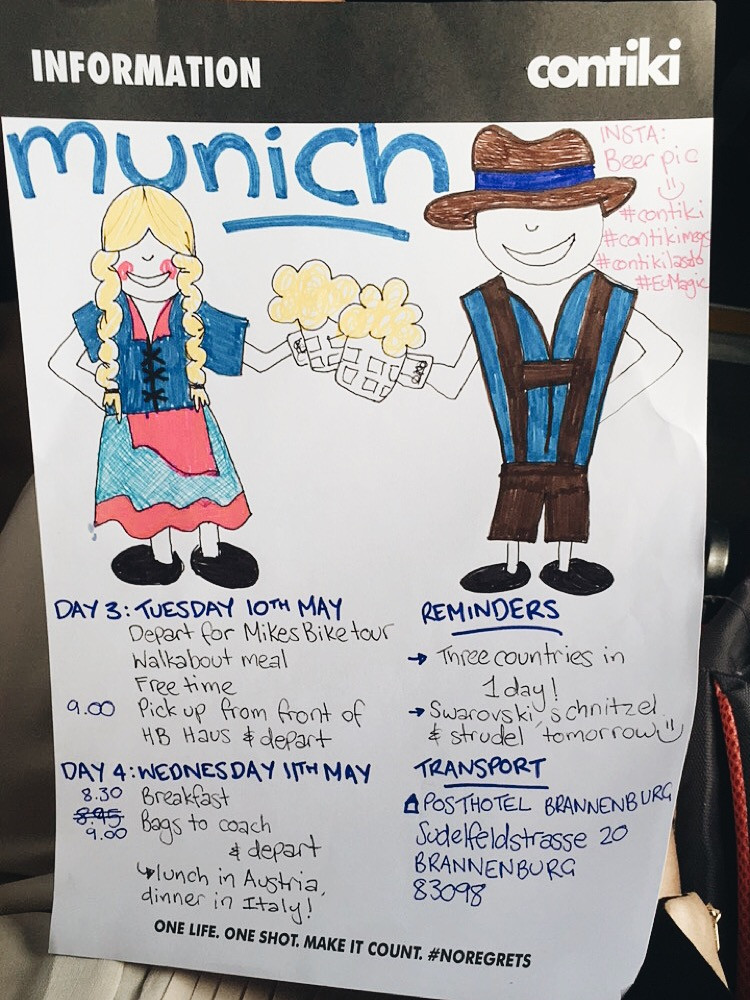 INFORMATION
contiki
munich
INSTA:
Beer pic
#contiki
#contikimags
#contikilasdo
#EuMagic
DAY 3: TUESDAY 10TH MAY
Depart for Mikes Bike tour
Walkabout meal
Free time
9.00 Pick up from front of
HB Haus & depart
DAY 4: WEDNESDAY 11TH MAY
8.30 Breakfast
8.45
9.00 Bags to coach
& depart
↳ lunch in Austria,
dinner in Italy!
REMINDERS
→ Three countries in
1 day!
→ Swarovski, schnitzel
& strudel tomorrow
TRANSPORT
POSTHOTEL BRANNENBURG
Sudelfeldstrasse 20
BRANNENBURG
83098
ONE LIFE. ONE SHOT. MAKE IT COUNT. #NOREGRETS